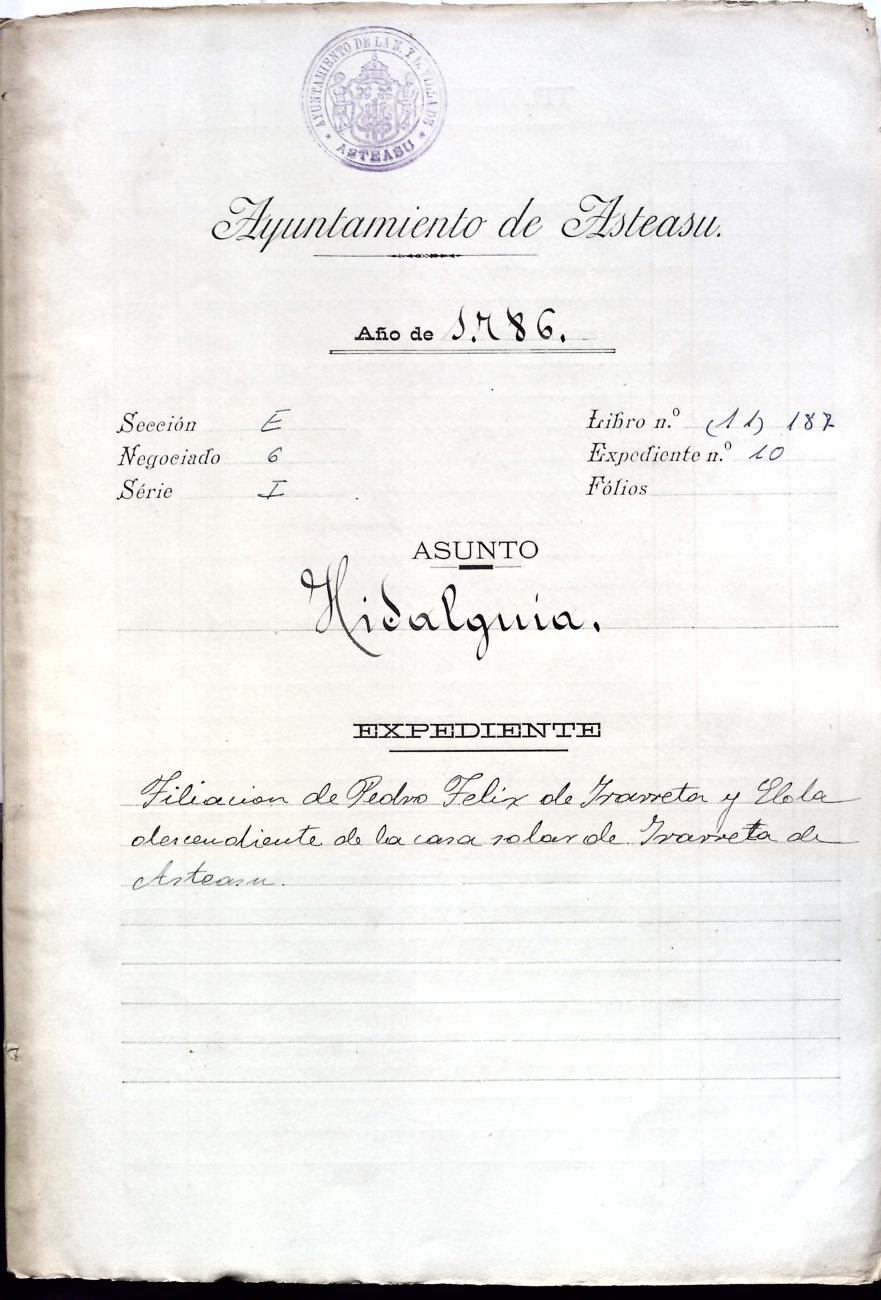 AYUNTAMIENTO DE LA N. Y L. VILLA DE
ASTEASU
Ayuntamiento de Asteasu.
Año de 1.786.
Sección E
Libro n.º (11) 187
Negociado 6
Expediente n.º 10
Série I
Fólios
ASUNTO
Hidalguia.
EXPEDIENTE
Filiacion de Pedro Felix de Yrarreta y Elola
descendiente de la casa solar de Yrarreta de
Asteasu.